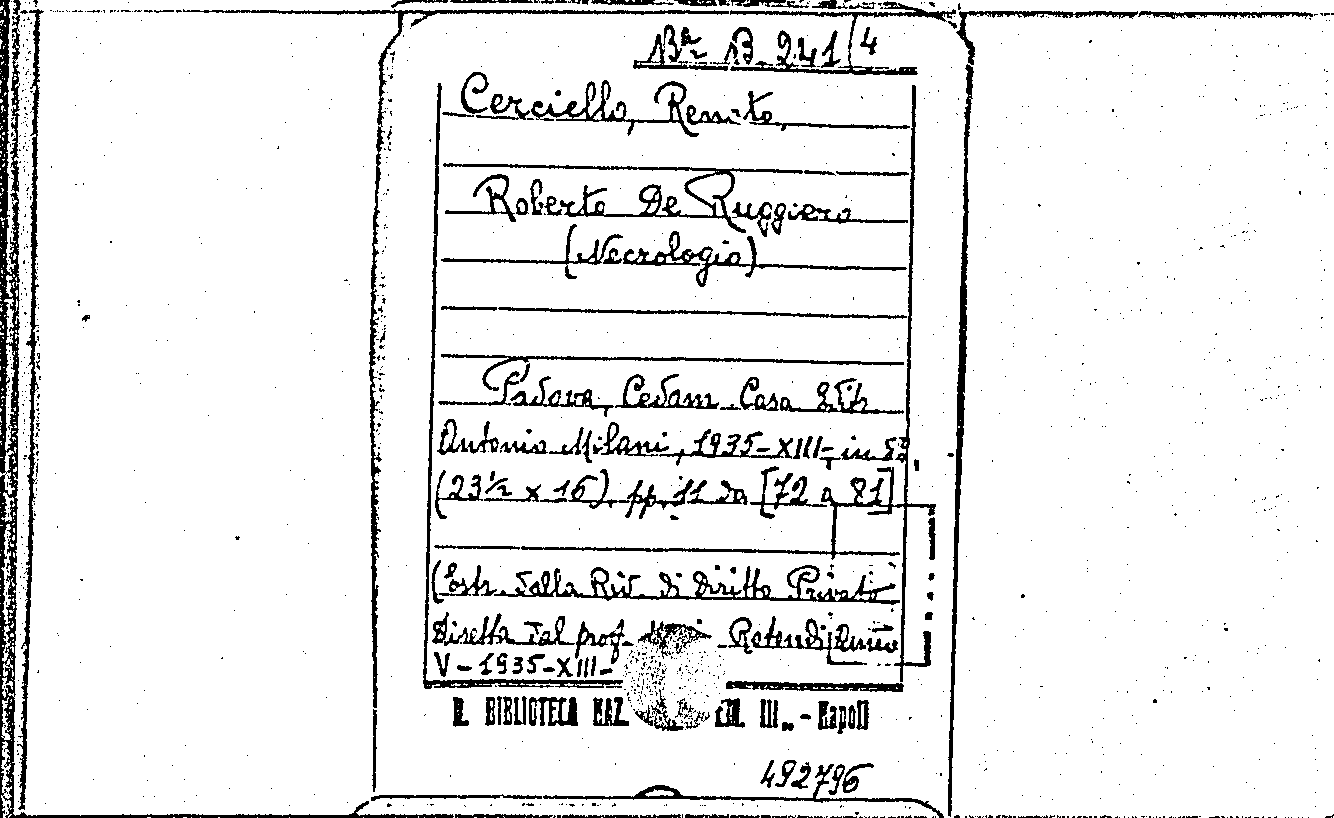 Bª B. 241/4
Cerciello, Renato,
Roberto De Ruggiero
(Necrologio)
Padova, Cedam Casa Edit.
Antonio Milani, 1935-XIII- in 8º
(23½ x 16). pp. 11 da [72 a 81]
(Estr. dalla Riv. di Diritto Privato
diretta dal prof. Rotondi, Anno
V - 1935-XIII-
R. BIBLIOTECA NAZ. EM. III„ - Napoli
492796